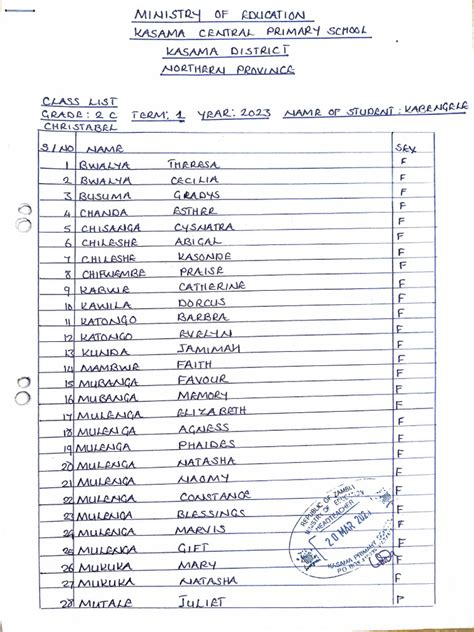 MINISTRY OF EDUCATION
KASAMA CENTRAL PRIMARY SCHOOL
KASAMA DISTRICT
NORTHERN PROVINCE
CLASS LIST
GRADE: 2 C TERM: 1 YEAR: 2023 NAME OF STUDENT: KABENGELE
CHRISTABEL
S/NO NAME SEX
1 BWALYA THERESA F
2 BWALYA CECILIA F
3 BUSUMA GRADYS F
4 CHANDA ESTHER F
5 CHISANGA CYSNATRA F
6 CHILESHE ABIGAL F
7 CHILESHE KASONDE F
8 CHIFWEMBE PRAISE F
9 KABWE CATHERINE F
10 KAWILA DORCUS F
11 KATONGO BARBRA F
12 KATONGO EVELYN F
13 KUNDA JAMIMAH F
14 MAMBWE FAITH F
15 MUBANGA FAVOUR F
16 MUBANGA MEMORY F
17 MULENGA ELIZABETH F
18 MULENGA AGNESS F
19 MULENGA PHAIDES F
20 MULENGA NATASHA F
21 MULENGA NAOMY F
22 MULENGA CONSTANCE F
23 MULENGA BLESSINGS F
24 MULENGA MARVIS F
25 MULENGA GIFT F
26 MUKUKA MARY F
27 MUKUKA NATASHA F
28 MUTALE JULIET F
REPUBLIC OF ZAMBIA
MINISTRY OF EDUCATION
HEADTEACHER
20 MAR 202
KASAMA PRIMARY
PO BOX